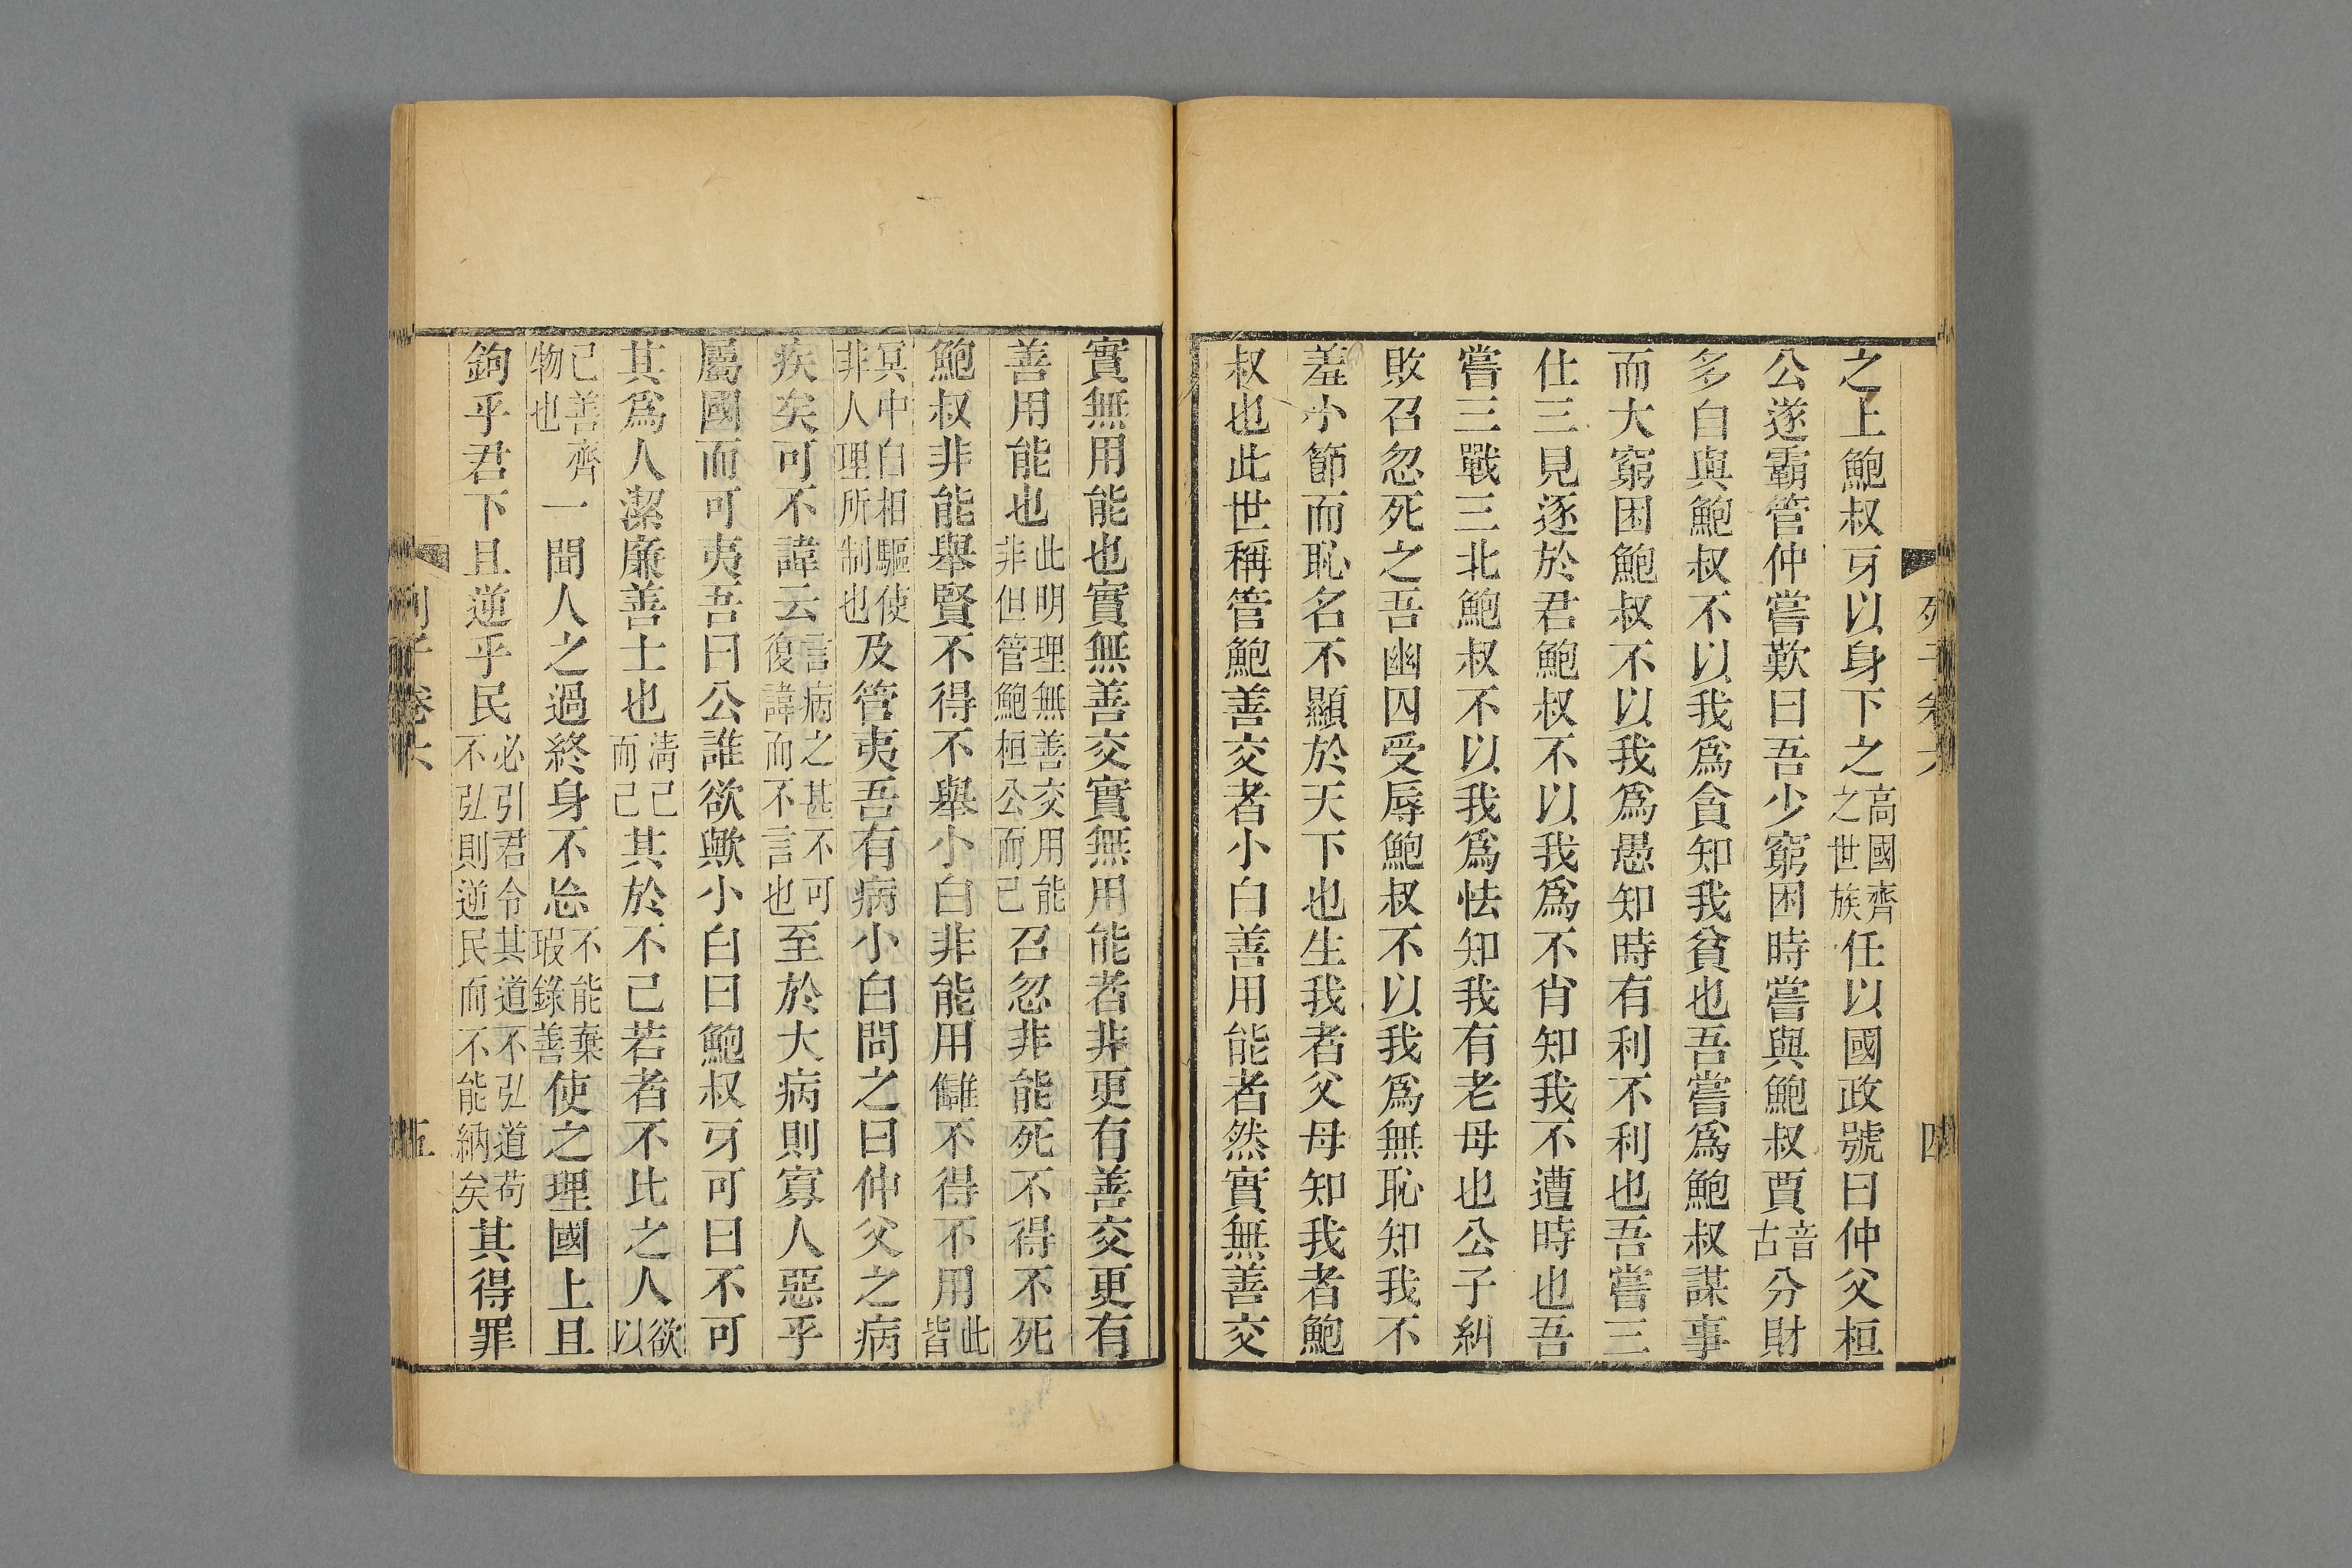 之上鮑叔牙以身下之高國齊之世族任以國政號曰仲父桓
公遂霸管仲嘗歎曰吾少窮困時嘗與鮑叔賈音古分財
多自與鮑叔不以我爲貪知我貧也吾嘗爲鮑叔謀事
而大窮困鮑叔不以我爲愚知時有利不利也吾嘗三
仕三見逐於君鮑叔不以我爲不肖知我不遭時也吾
嘗三戰三北鮑叔不以我爲怯知我有老母也公子糾
敗召忽死之吾幽囚受辱鮑叔不以我爲無恥知我不
羞小節而恥名不顯於天下也生我者父母知我者鮑
叔也此世稱管鮑善交者小白善用能者然實無善交
實無用能也實無善交實無用能者非更有善交更有
善用能也此明理無善交用能非但管鮑桓公而已召忽非能死不得不死
鮑叔非能舉賢不得不舉小白非能用讎不得不用此皆
冥中自相驅使非人理所制也及管夷吾有病小白問之曰仲父之病
疾矣可不諱云言病之甚不可復諱而不言也至於大病則寡人惡乎
屬國而可夷吾曰公誰欲歟小白曰鮑叔牙可曰不可
其爲人潔廉善士也清己而已其於不己若者不比之人欲以
己善齊物也一聞人之過終身不忘不能棄瑕錄善使之理國上且
鉤乎君下且逆乎民必引君令其道不弘道苟不弘則逆民而不能納矣其得罪
列子卷六
四
列子卷六
五